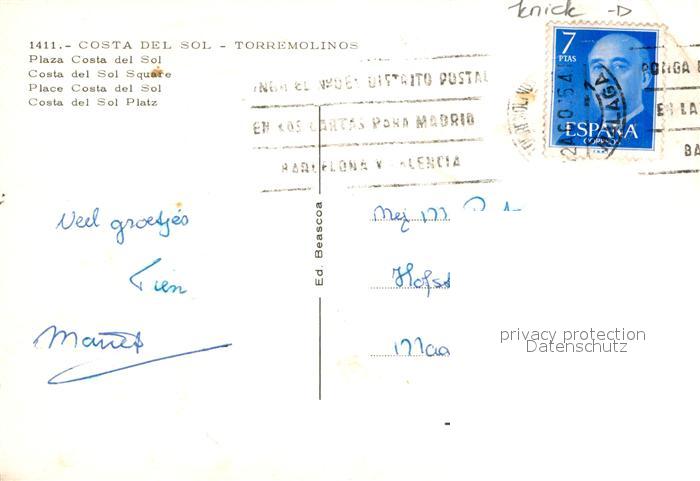 Knick
1411.- COSTA DEL SOL - TORREMOLINOS
Plaza Costa del Sol
Costa del Sol Square
Place Costa del Sol
Costa del Sol Platz
7
PTAS
ESPAÑA
CORREOS
MALAGA
NGA EL Nº DEL DISTRITO POSTAL
EN LAS CARTAS PARA MADRID
BARCELONA Y VALENCIA
PONGA
EN LA
BA
Ed. Beascoa
Veel groetjes
Tien
Mej M
Hofst
Maa
privacy protection
Datenschutz